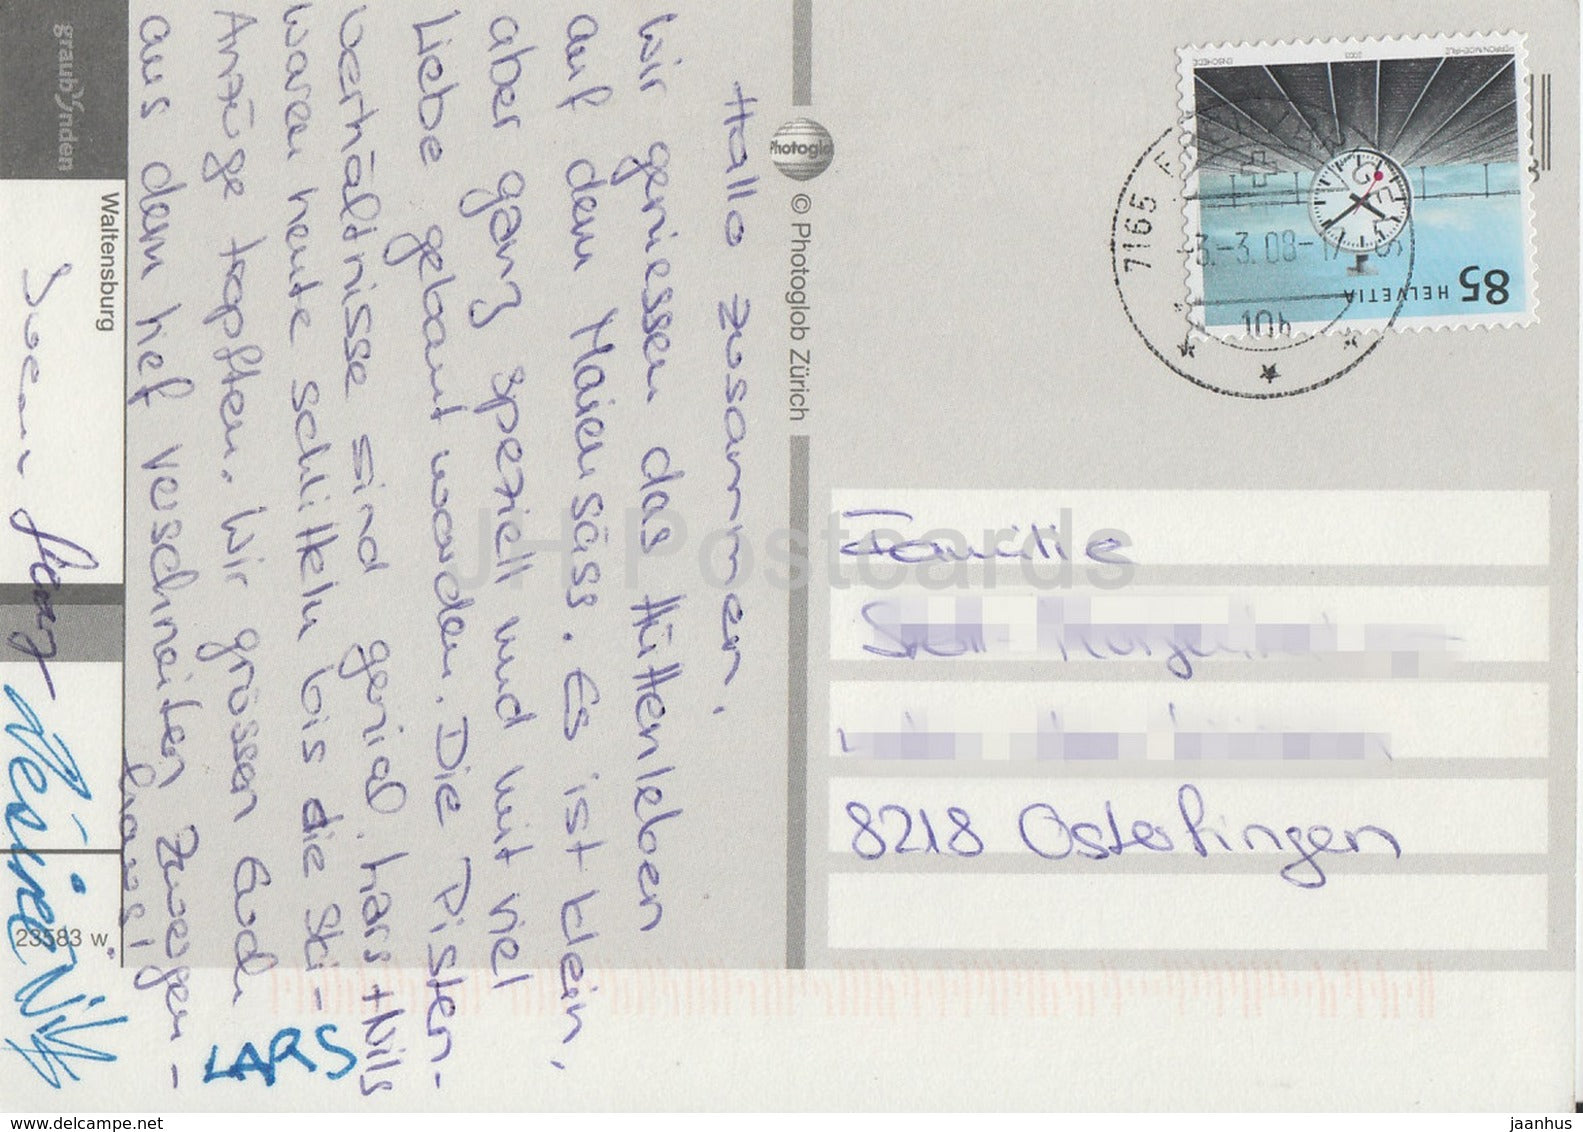 Hallo zusammen.
Wir geniessen das Hüttenleben
auf dem Maiensäss. Es ist klein,
aber ganz speziell und mit viel
Liebe gebaut worden. Die Pisten-
verhältnisse sind genial. Lars + Nils
waren heute schlitteln bis die Ski-
Anzüge tropften. Wir grüssen Euch
aus dem tief verschneiten Zwergen-
haus!
LARS
graubünden
Waltensburg
23583 w
Photoglob
© Photoglob Zürich
ENSCHEDE
2003
HELVETIA 85
7165
-3.-3.08-17
10h
Familie
8218 Osterfingen
JH Postcards
www.delcampe.net
jaanhus